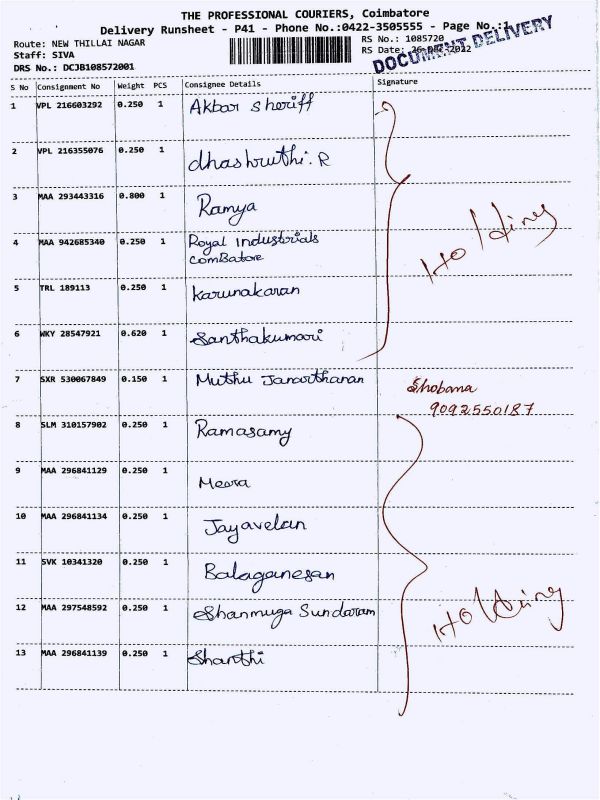 THE PROFESSIONAL COURIERS, Coimbatore
Delivery Runsheet - P41 - Phone No.:0422-3505555 - Page No.:1
Route: NEW THILLAI NAGAR
RS No.: 1085720
Staff: SIVA
RS Date: 26-DEC-2022
DRS No.: DCJB108572001
DOCUMENT DELIVERY
S No Consignment No Weight PCS Consignee Details Signature
1 VPL 216603292 0.250 1 Akbar sheriff
2 VPL 216355076 0.250 1 dhashruthi.R
3 MAA 293443316 0.800 1 Ramya
Holding
4 MAA 942685340 0.250 1 Royal Industrials
ComBatore
5 TRL 189113 0.250 1 Karunakaran
6 WKY 28547921 0.620 1 Santhakumari
7 SXR 530067849 0.150 1 Muthu Janarthanan Shobana
9092550187
8 SLM 310157902 0.250 1 Ramasamy
9 MAA 296841129 0.250 1 Meera
10 MAA 296841134 0.250 1 Jayavelan
11 SVK 10341320 0.250 1 Balaganesan
12 MAA 297548592 0.250 1 Shanmuga Sundaram
Holding
13 MAA 296841139 0.250 1 Shanthi